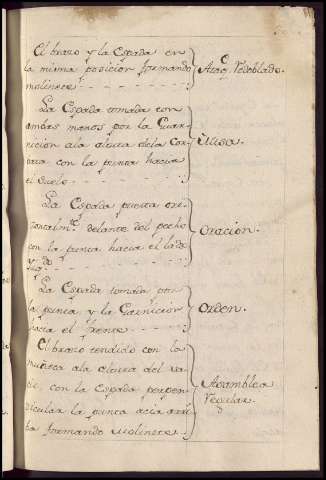 El brazo y la Espada en
la misma posicion formando
molinete
Ataq.e Redoblado.
La Espada tomada con
ambas manos por la Guar-
nicion ala altura dela Cor-
bata con la punta hacia
el suelo
Misa.
La Espada puesta ori-
zontalm.te delante del pecho
con la punta hacia el lado
Oracion.
La Espada tomada por
la punta y la Guarnicion
hacia el frente
Orden.
El brazo tendido con la
muñeca ala altura del
con la Espada perpen-
dicular la punta acia arri-
ba formando Molinete
Asamblea
Regular.